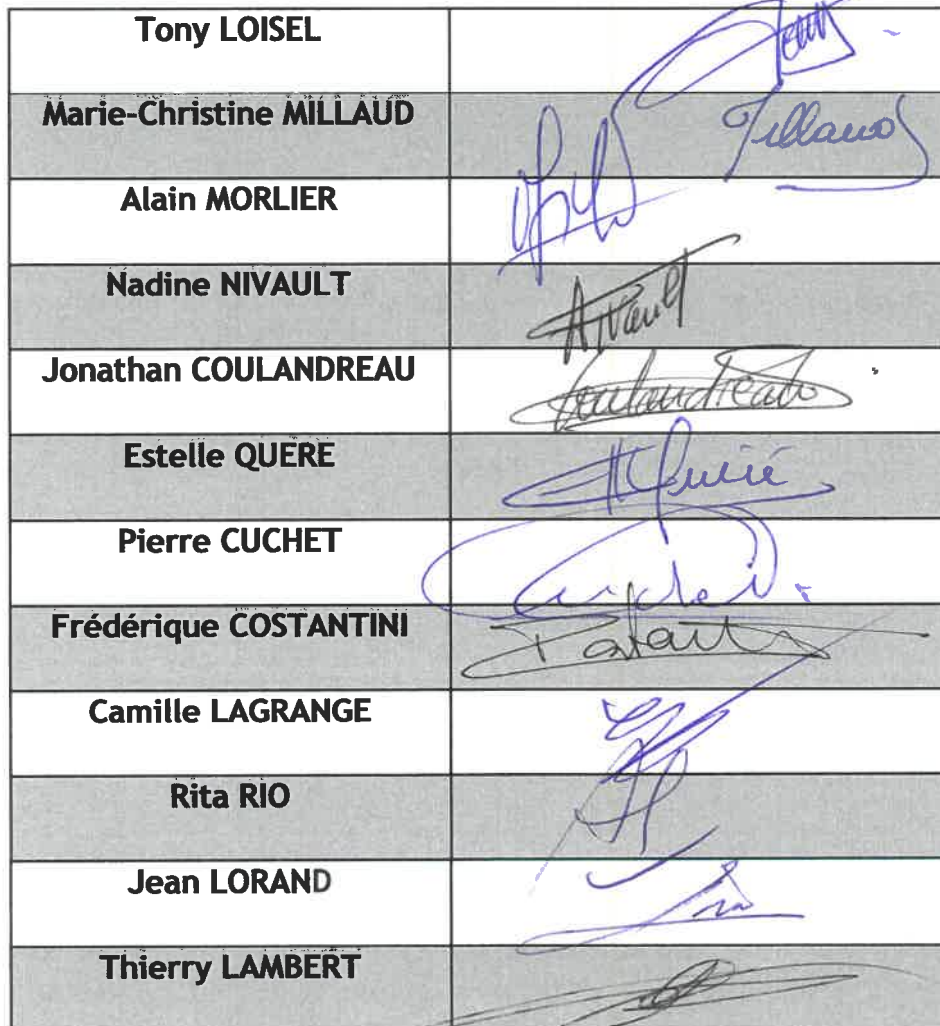 Tony LOISEL
Marie-Christine MILLAUD
Millaud
Alain MORLIER
Nadine NIVAULT
Nivault
Jonathan COULANDREAU
Coulandreau
Estelle QUERE
Quéré
Pierre CUCHET
Frédérique COSTANTINI
Camille LAGRANGE
Rita RIO
Jean LORAND
Thierry LAMBERT